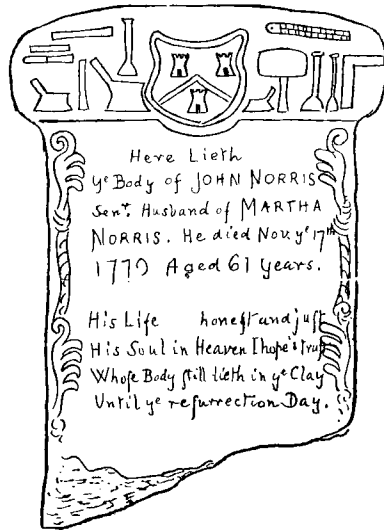 Here Lieth
yᵉ Body of JOHN NORRIS
Senʳ. Husband of MARTHA
NORRIS. He died Nov. yᵉ 17ᵗʰ
Aged 61 years.
His Life honeſt and juſt
His Soul in Heaven I hope truſt
Whoſe Body ſtill lieth in yᵉ Clay
Until yᵉ reſurrection Day.